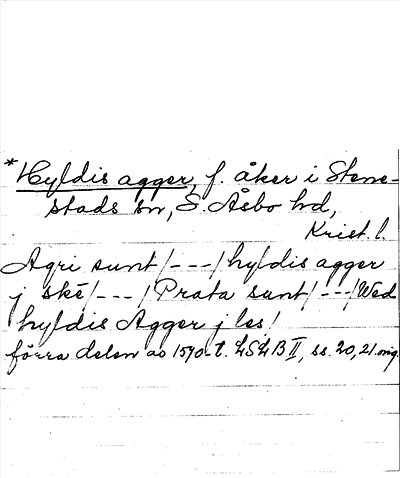 *Hyldis agger, f. åker i Stene-
stads sn, S. Åsbo hd,
Krist. l.
Agri sunt/---/hyldis agger
j skē/---/Prata sunt/---/Wed
hyldis Agger j les/
förra delen av 1570-t. LSLB II, ss. 20, 21. orig.